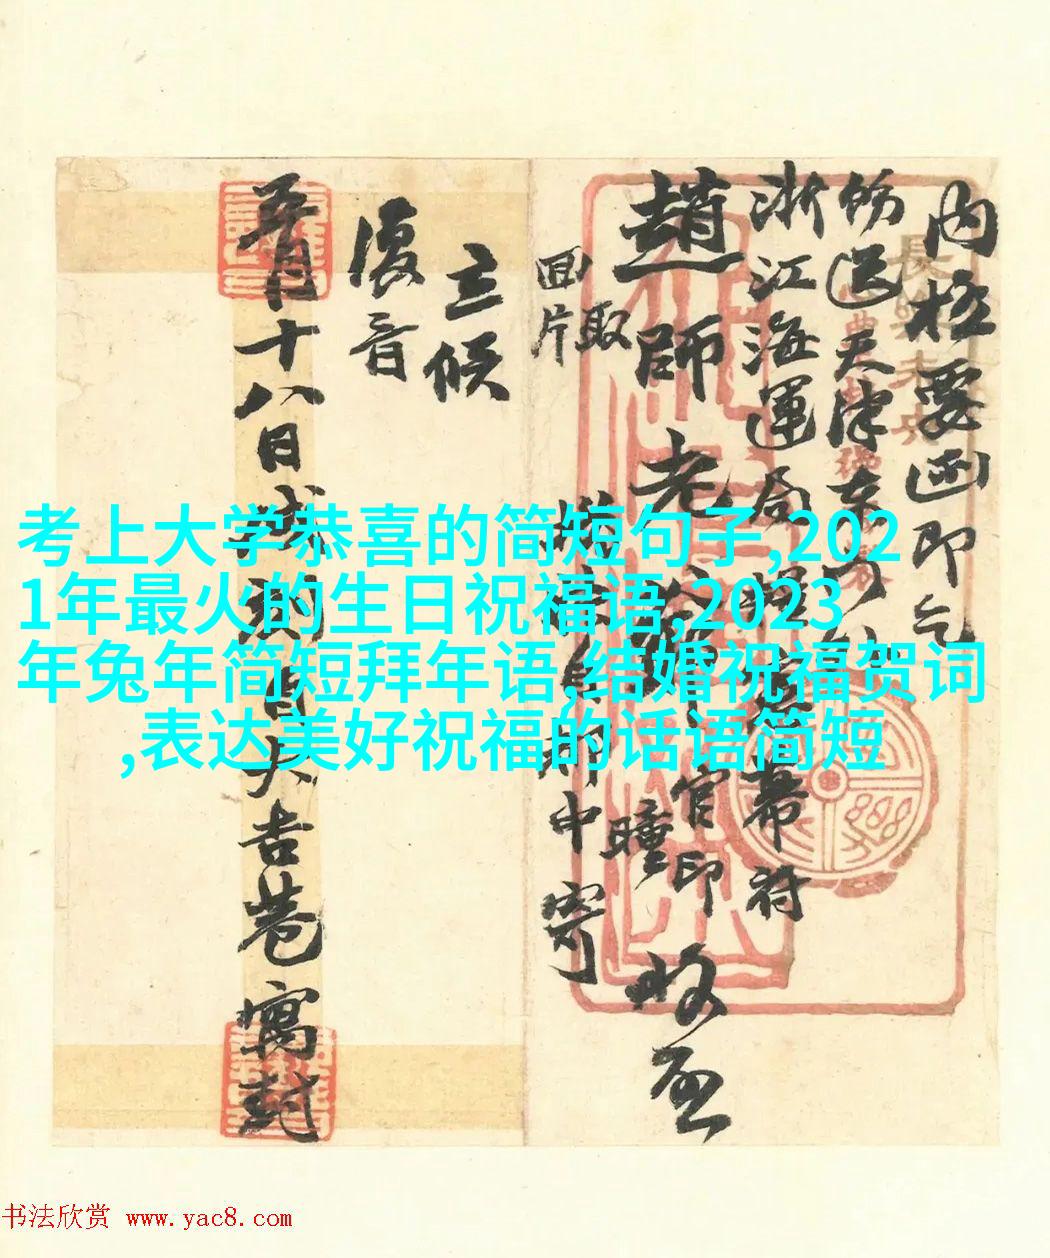 考上大学恭喜的简短句子,202
1年最火的生日祝福语,2023
年兔年简短拜年语,结婚祝福贺词
,表达美好祝福的话语简短
内極要函即乞
飭送天津東
浙江海運局
趙師老
官印
取
回片
郎中寄
立候
復音
月十八日城自大吉巷寓封
书法欣赏 www.yac8.com